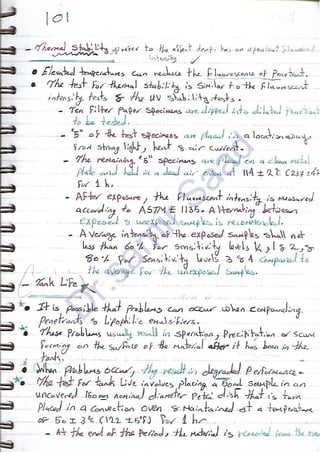 101
- Thermal Stability, refer to the effect temp. has on a penetrant fluorescent
intensity
• Elevated temperatures can reduce the Fluorescence of Penetrant.
• The test for thermal stability is similar to the Fluorescent
intensity tests & the UV stability tests.
- Ten Filter Paper Specimens are dipped into diluted penetrant
to be tested.
- "5" of the test specimens are placed in a location away
From strong light, heat & air current.
- The remaining "5" specimens are placed on a clean metal
Plate and held in a dead air oven at 111 ± 2°C (234 ± 4F
For 1 h.
- After exposure, the Fluorescent intensity is measured
according to ASTM E 1135. Alternating between
exposed & unexposed samples is recommended.
- Average intensity of the exposed samples shall not
less than 60% for sensitivity levels ½, 1 & 2, &
80% for Sensitivity levels 3 & 4 compared to
the average for the unexposed samples.
- Tank Life
• It is possible that problems can occur when compounding
penetrants & lipophilic emulsifiers.
• These Problems usually result in speration, Precipitation or scum
forming on the surface of the material after it has been in the
tank.
• When Problems occur, they result in degraded Performance.
• The test for tank Live involves, placing a 50ml sample in an
uncovered 150mm nominal diameter Petri dish that is turn
Placed in a Convection oven & Maintained at a temperature
of 50 ± 3°C (122 ± 5F) For 7 hr
- At the end of the Period, the Material is removed from the oven
Dr. Samir Saad